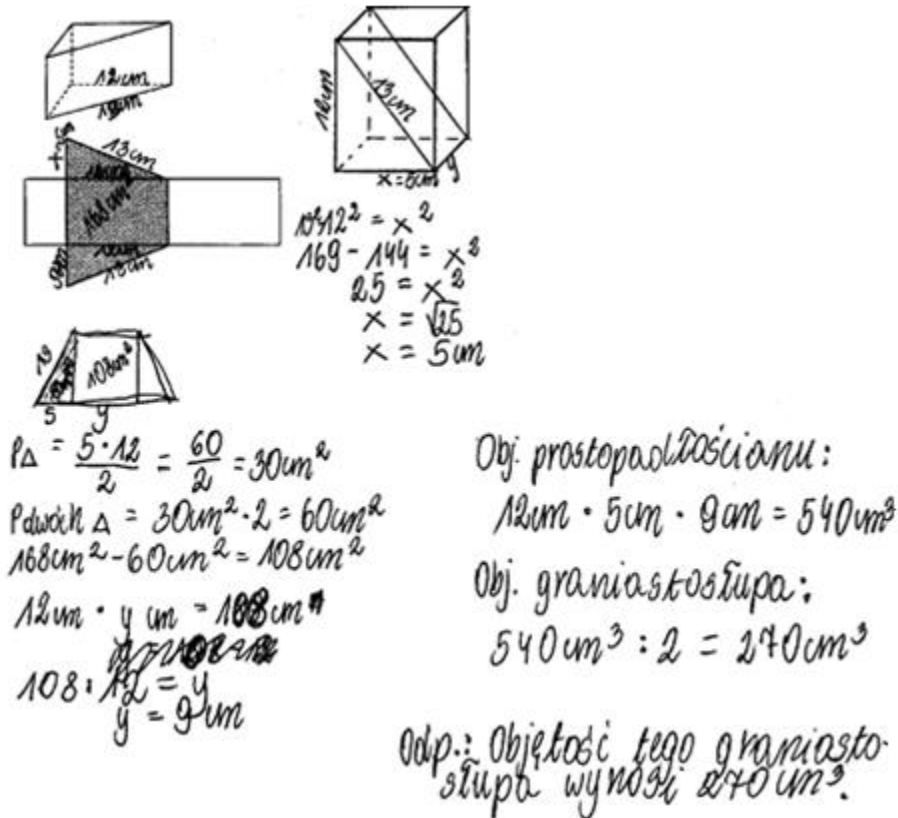 12 cm
13 cm
13 cm
168 cm²
13 cm
12 cm
13 cm
x = 5 cm
y
13²-12² = x²
169 - 144 = x²
25 = x²
x = √25
x = 5 cm
13
108 cm²
5
y
P△ = 5 · 12 / 2 = 60 / 2 = 30 cm²
P dwóch △ = 30 cm² · 2 = 60 cm²
168 cm² - 60 cm² = 108 cm²
12 cm · y cm = 108 cm²
108 : 12 = y
y = 9 cm
Obj. prostopadłościanu:
12 cm · 5 cm · 9 cm = 540 cm³
Obj. graniastosłupa:
540 cm³ : 2 = 270 cm³
Odp.: Objętość tego graniasto-
słupa wynosi 270 cm³.